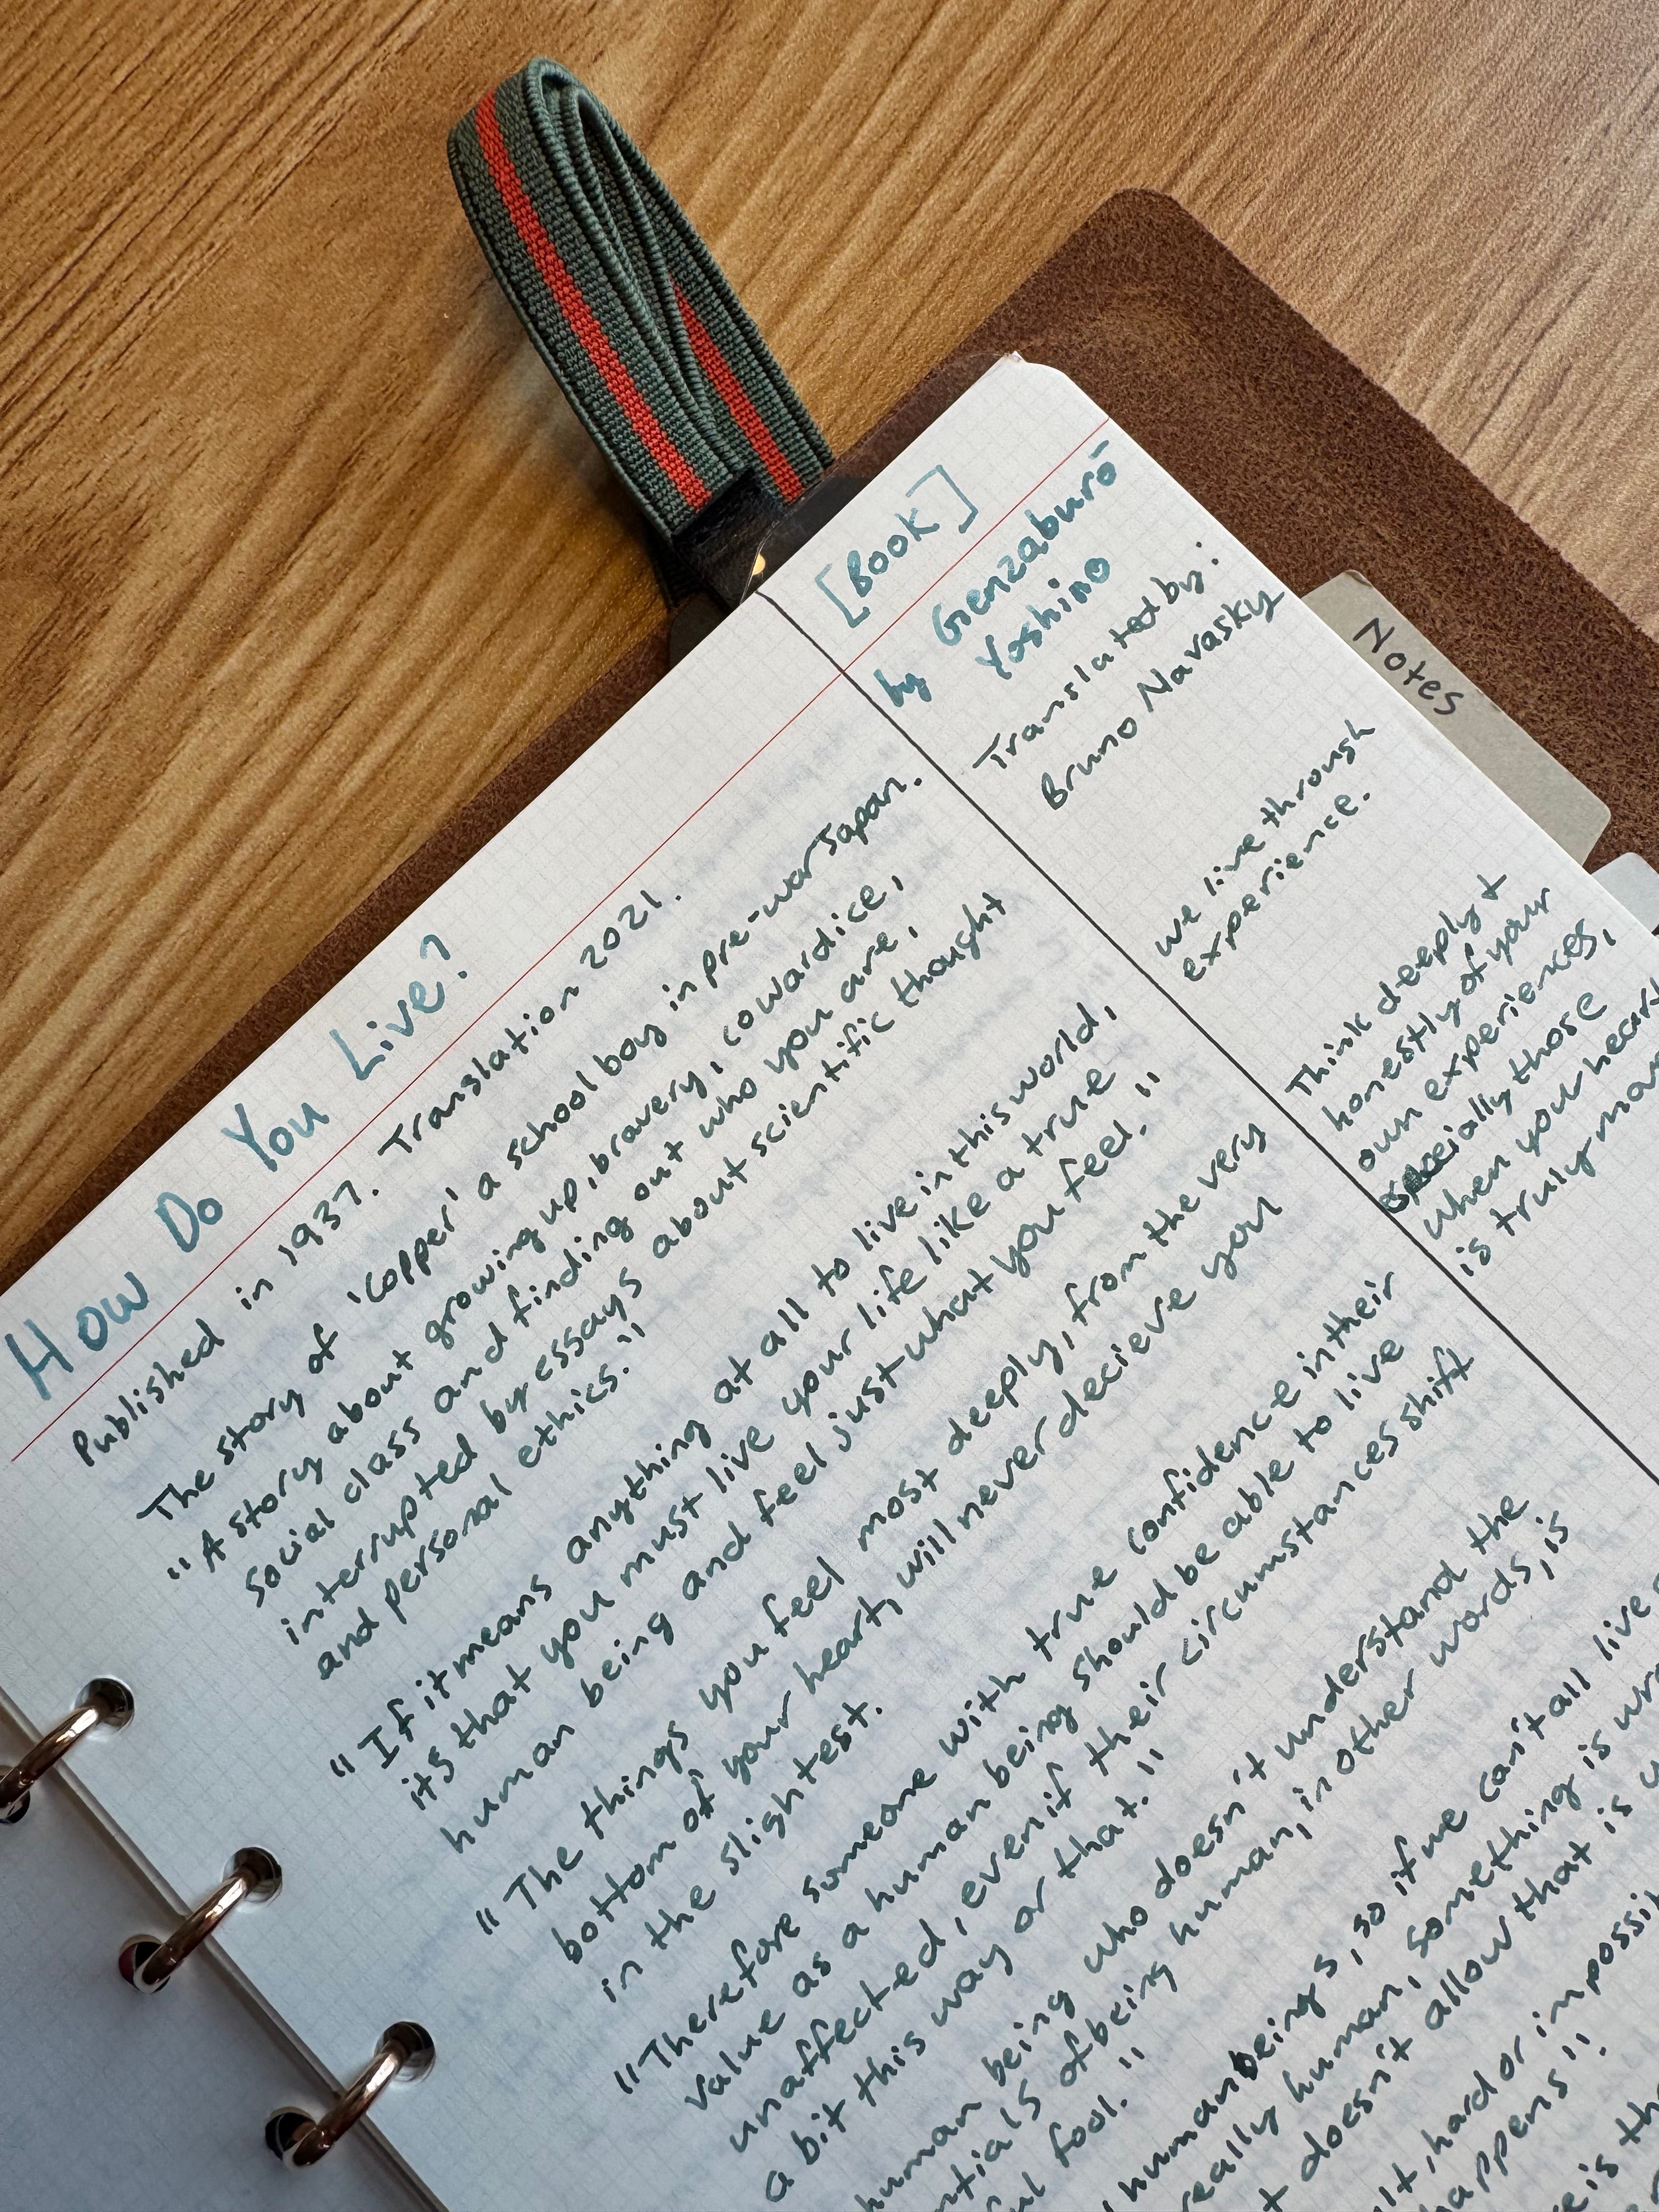 How Do You Live?
[Book]
by Genzaburō
Yoshino
Translated by:
Bruno Navasky
Published in 1937. Translation 2021.
The story of 'Copper' a school boy in pre-war Japan.
"A story about growing up, bravery, cowardice,
social class and finding out who you are,
interrupted by essays about scientific thought
and personal ethics."
"If it means anything at all to live in this world,
its that you must live your life like a true
human being and feel just what you feel."
"The things you feel most deeply, from the very
bottom of your heart, will never decieve you
in the slightest.
"Therefore someone with true confidence in their
value as a human being should be able to live
unaffected, even if their circumstances shift
a bit this way or that."
human being who doesn't understand the
of being human, in other words, is
fool."
human beings, so if we can't all live
really human, something is
doesn't allow that is
hard or
happens".
is
we live through
experience.
Think deeply +
honestly of your
own experiences,
especially those
when you heart
is truly
Notes